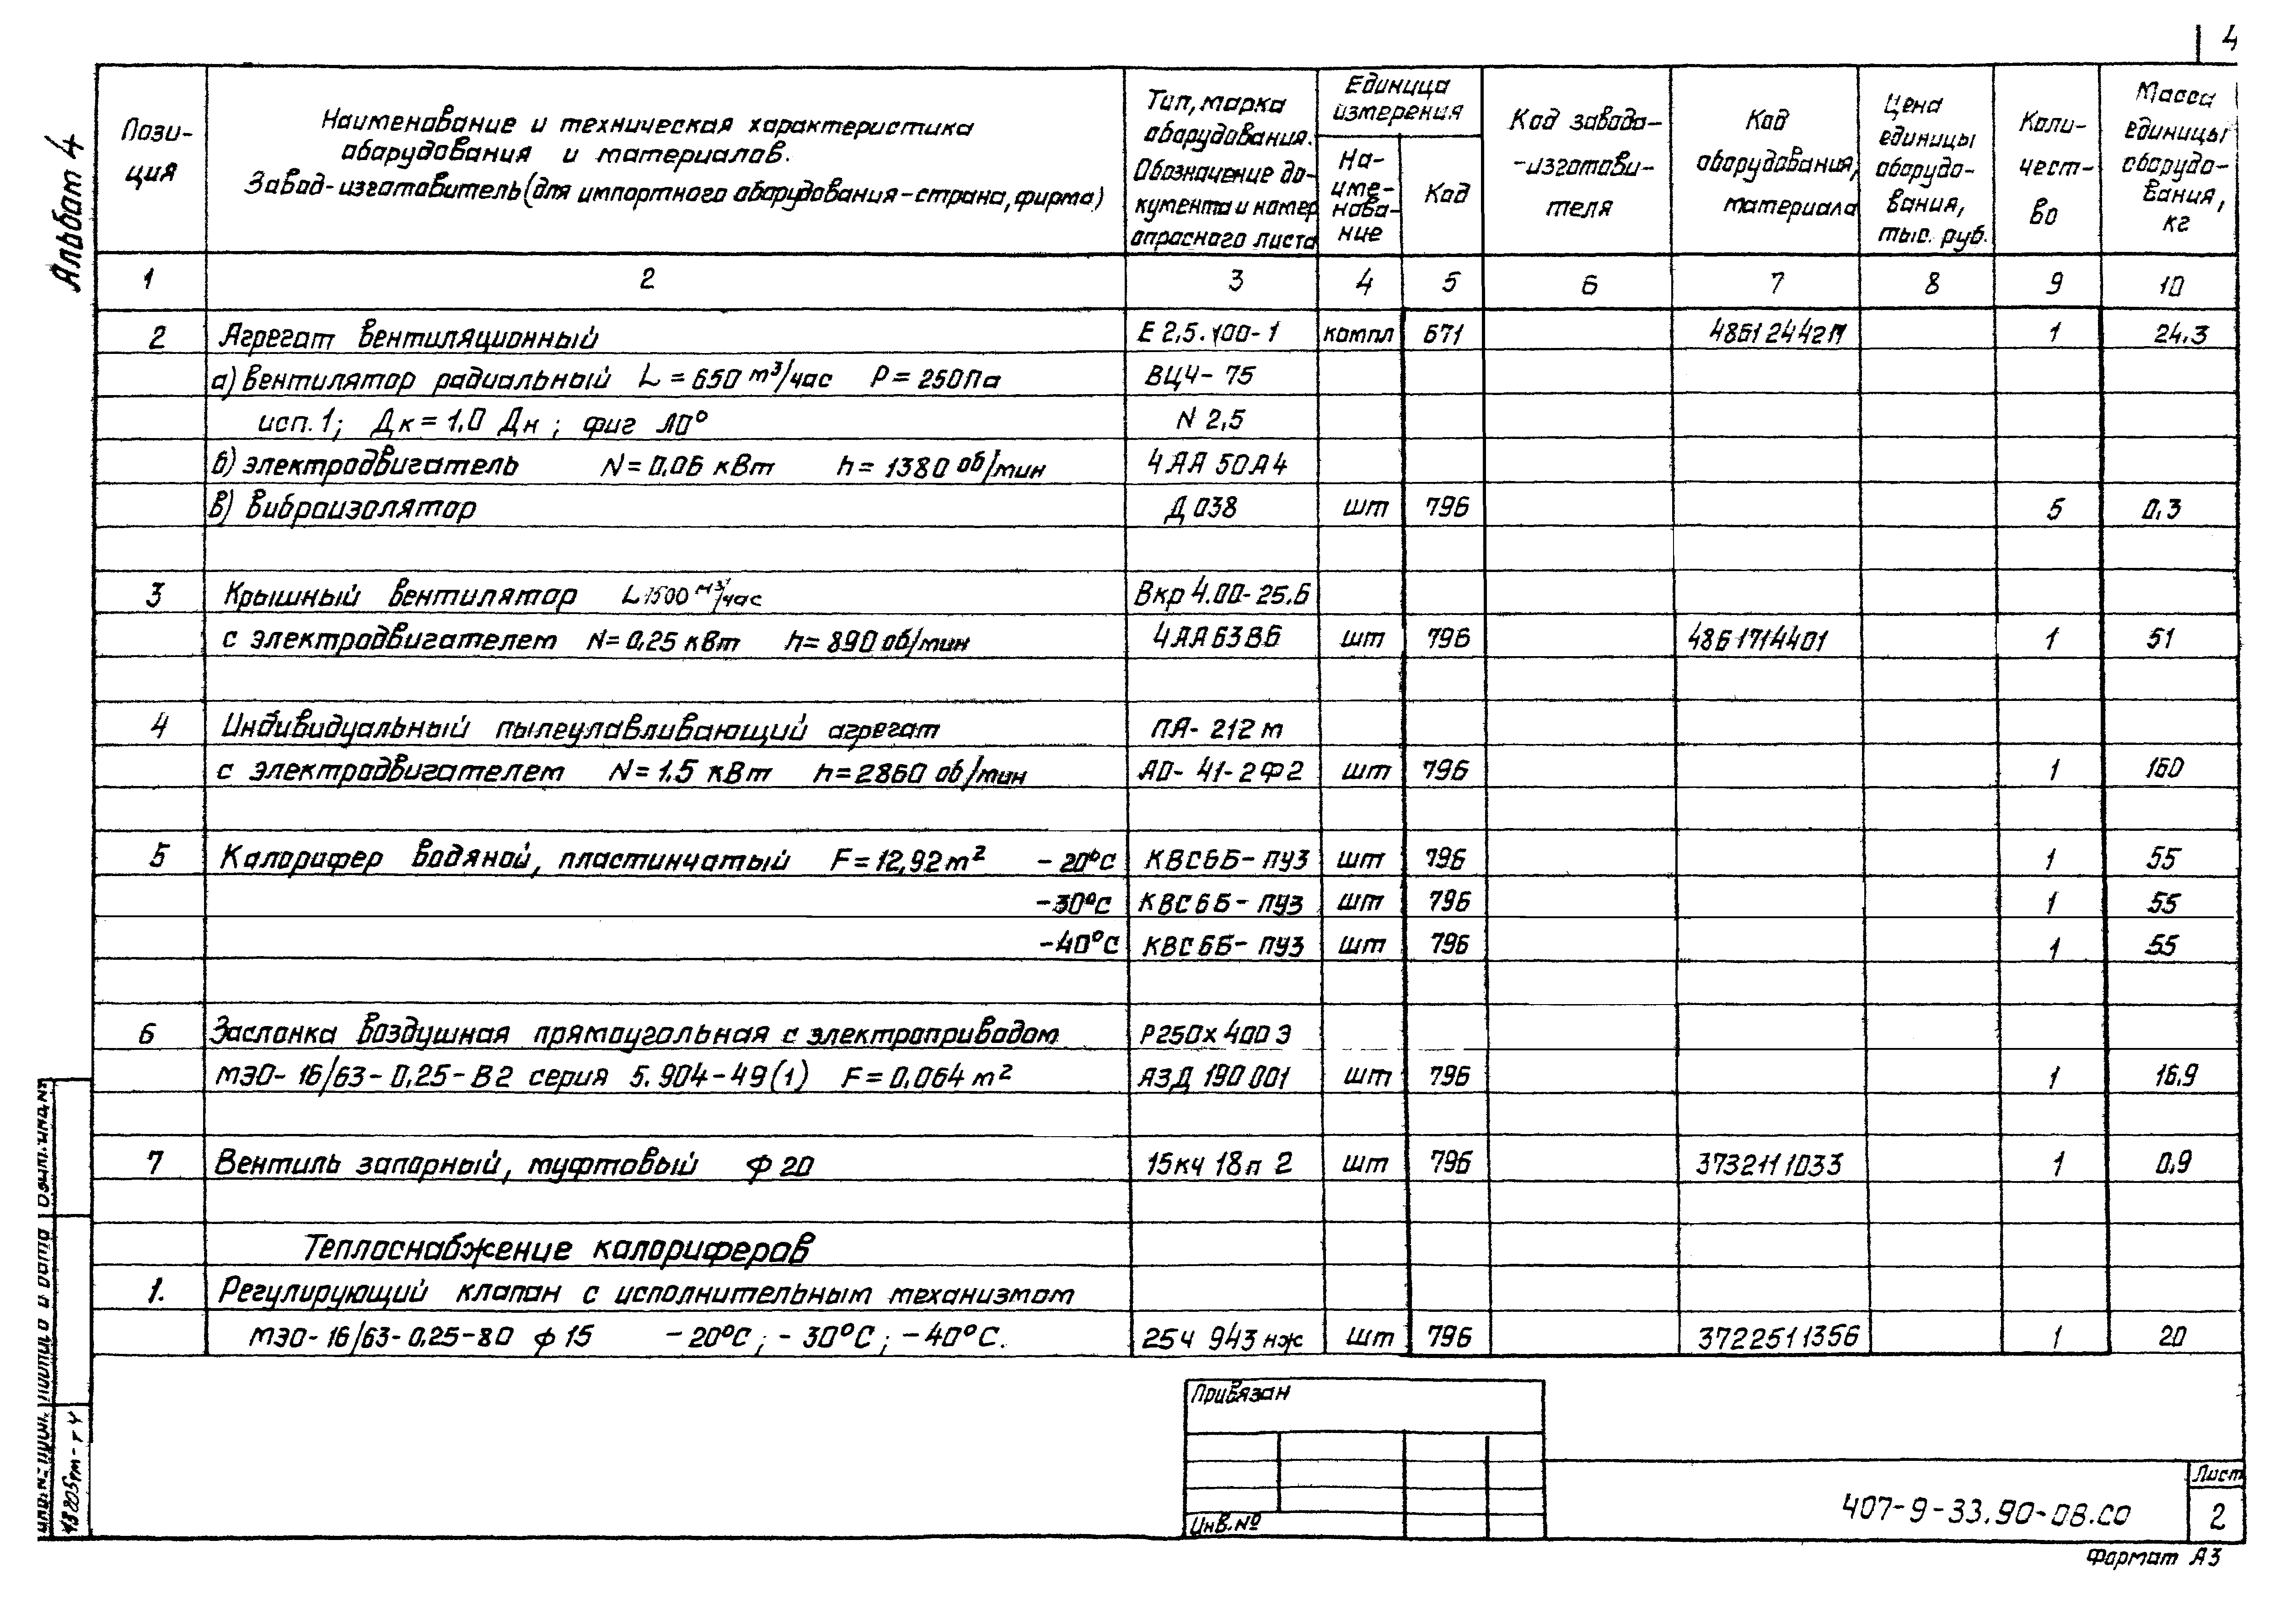 4
Альбом 4
Пози-
ция
Наименование и техническая характеристика
оборудования и материалов.
Завод-изготовитель (для импортного оборудования-страна, фирма)
Тип, марка
оборудования.
Обозначение до-
кумента и номер
опросного листа
Единица
измерения
На-
име-
нова-
ние
Код
Код завода-
-изготови-
теля
Код
оборудования,
материала
Цена
единицы
оборудо-
вания,
тыс. руб.
Коли-
чест-
во
Масса
единицы
оборудо-
вания,
кг
1 2 3 4 5 6 7 8 9 10
2 Агрегат вентиляционный Е 2,5.100-1 компл 671 1 24,3
а) Вентилятор радиальный L = 650 м³/час Р = 250Па ВЦ4-75
исп. 1; Дк = 1,0 Дн; фиг Л0° N 2,5
б) электродвигатель N = 0,06 кВт n = 1380 об/мин 4АА 50А4
в) Виброизолятор Д 038 шт 796 5 0,3
3 Крышный вентилятор L 1500 м³/час Вкр 4.00-25.6
с электродвигателем N = 0,25 кВт n = 890 об/мин 4АА63В6 шт 796 4861714401 1 51
4 Индивидуальный пылеулавливающий агрегат ПА-212 м
с электродвигателем N = 1.5 кВт n = 2860 об/мин АО-41-2Ф2 шт 796 1 160
5 Калорифер водяной, пластинчатый F = 12,92 м² -20°С КВС6Б-ПУЗ шт 796 1 55
-30°С КВС6Б-ПУЗ шт 796 1 55
-40°С КВС6Б-ПУЗ шт 796 1 55
6 Заслонка воздушная прямоугольная с электроприводом Р250х400 Э
МЭО-16/63-0,25-В2 серия 5.904-49(1) F = 0,064 м² АЗД 190 001 шт 796 1 16,9
7 Вентиль запорный, муфтовый ф 20 15кч 18п 2 шт 796 3732111033 1 0,9
Теплоснабжение калориферов
1. Регулирующий клапан с исполнительным механизмом
МЭО-16/63-0,25-80 ф 15 -20°С; -30°С; -40°С. 25ч 943 нж шт 796 3722511356 1 20
Привязан
Инв. №
407-9-33.90-08.СО
Лист
2
Формат А3